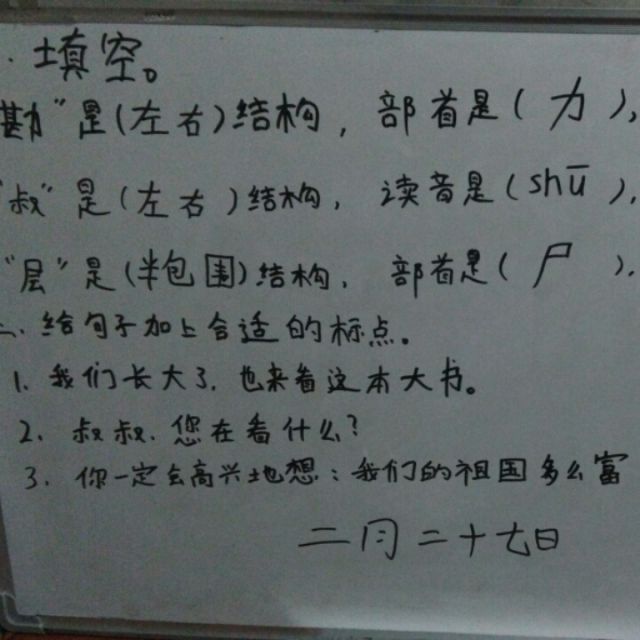 填空。
勘”是(左右)结构，部首是(力)，
“叔”是(左右)结构，读音是(shū)，
“层”是(半包围)结构，部首是(尸)，
二、给句子加上合适的标点。
1. 我们长大了，也来看这本大书。
2. 叔叔，您在看什么？
3. 你一定会高兴地想：我们的祖国多么富
二月二十七日